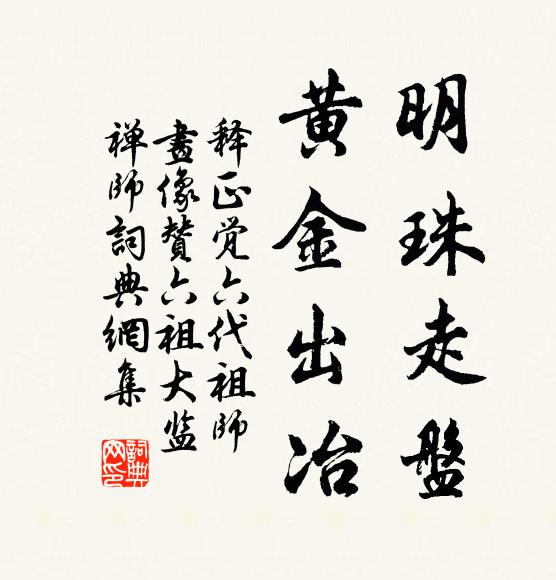 明珠走盤
黄金出冶
释正觉六代祖師
畫像贊六祖大监
禅師詞典網集
詞典网印